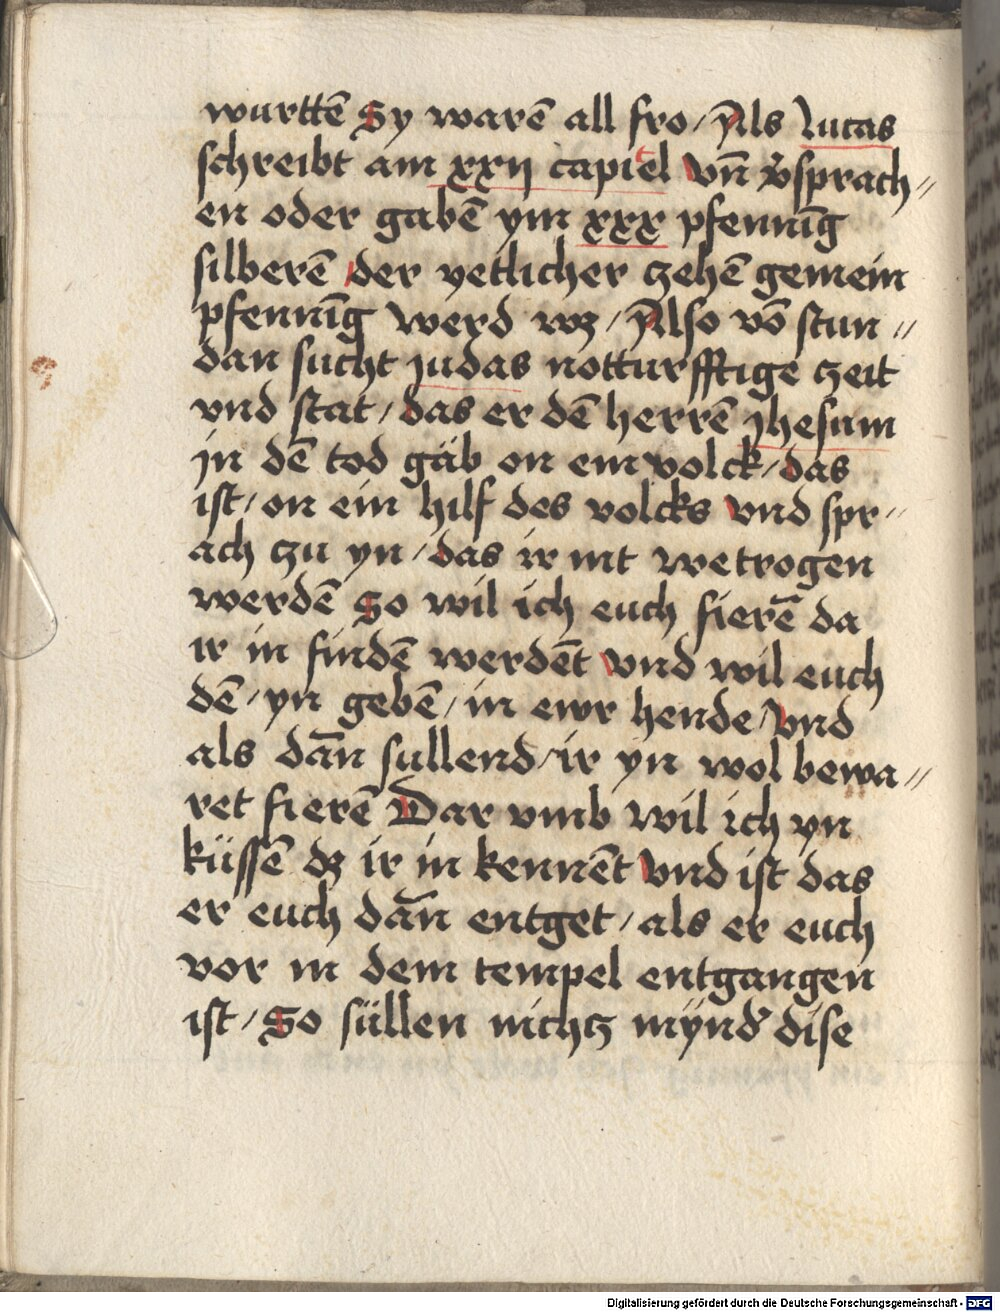 wurttē Sy warē all fro / Als Lucas
schreibt am xxij capiel Vn̄ v̓sprach //
en oder gabē ym xxx pfennīg
silberē / der yetlicher czehē gemein
pfennīg werd wz / Also vō stun //
dan sucht judas notturfftige czeit
vnd stat / das er dē herrē jhesum
jn dē tod gäb on ein volck / das
ist / on ein hilf des volcks Vnd spr //
ach czu yn / das ir nit wetrogen
werdē So wil ich euch fierē da
ir in findē werdēt Vnd wil euch
dē / yn gebē / in ewr hende / Vnd
als dān sullend / ir yn wol bewa //
ret fierē Dar vmb wil ich yn
küssē dz ir in kennēt Vnd ist das
er euch dān entget / als er euch
vor in dem tempel entgangen
ist / So süllen nichcz mÿnd̓ dise
Digitalisierung gefördert durch die Deutsche Forschungsgemeinschaft - DFG